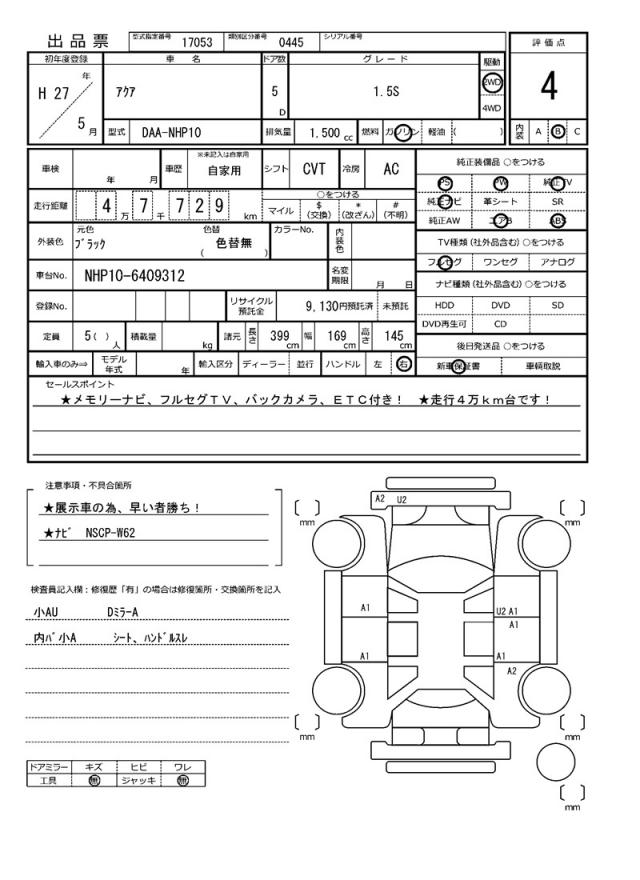 出品票 型式指定番号 17053 類別区分番号 0445 シリアル番号
評価点
4
内装 A B C
初年度登録 車名 ドア数 グレード 駆動
H 27 年 5 月
アクア
5 D
1.5S
2WD
4WD
型式 DAA-NHP10 排気量 1.500 cc 燃料 ガソリン 軽油 ( )
車検 年 月 車歴 ※未記入は自家用 自家用 シフト CVT 冷房 AC
走行距離 4 万 7 千 729 km ○をつける
マイル $(交換) *(改ざん) #(不明)
外装色 元色 ブラック 色替 ( 色替無 ) カラーNo. 内装色
車台No. NHP10-6409312 名変期限 月 日
登録No. リサイクル預託金 9,130円預託済 未預託
定員 5( )人 積載量 kg 諸元 長さ 399 cm 幅 169 cm 高さ 145 cm
輸入車のみ⇒ モデル年式 年 輸入区分 ディーラー 並行 ハンドル 左 右
純正装備品 ○をつける
PS PW 純正TV
純正ナビ 革シート SR
純正AW エアB ABS
TV種類(社外品含む)○をつける
フルセグ ワンセグ アナログ
ナビ種類(社外品含む)○をつける
HDD DVD SD
DVD再生可 CD
後日発送品 ○をつける
新車保証書 車輌取説
セールスポイント
★メモリーナビ、フルセグTV、バックカメラ、ETC付き! ★走行4万km台です!
注意事項・不具合箇所
★展示車の為、早い者勝ち!
★ナビ NSCP-W62
検査員記入欄:修復歴「有」の場合は修復箇所・交換箇所を記入
小AU DミラーA
内バ小A シート、ハンドルスレ
ドアミラー キズ ヒビ ワレ
工具 無 ジャッキ 無
A2 U2
mm
mm
A1
U2 A1
A1
A1
A1
A2
mm
mm
mm